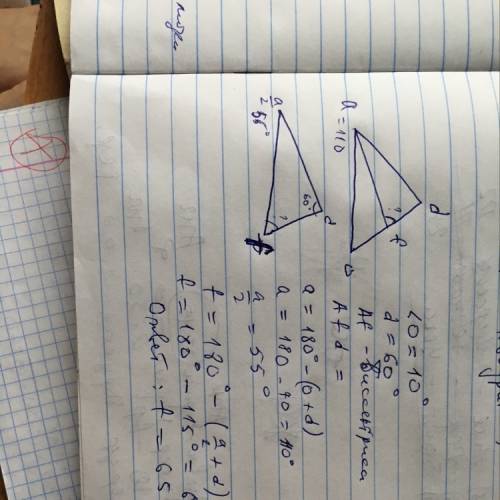 d
a = 110
?
f
o
∠O = 10°
d = 60°
Af - биссектриса
Afd =
a
2 55°
60°
d
?
f
a = 180° - (o + d)
a = 180 - 70 = 110°
a/2 = 55°
f = 180° - (a/2 + d)
f = 180° - 115° = 6
Ответ: f = 65